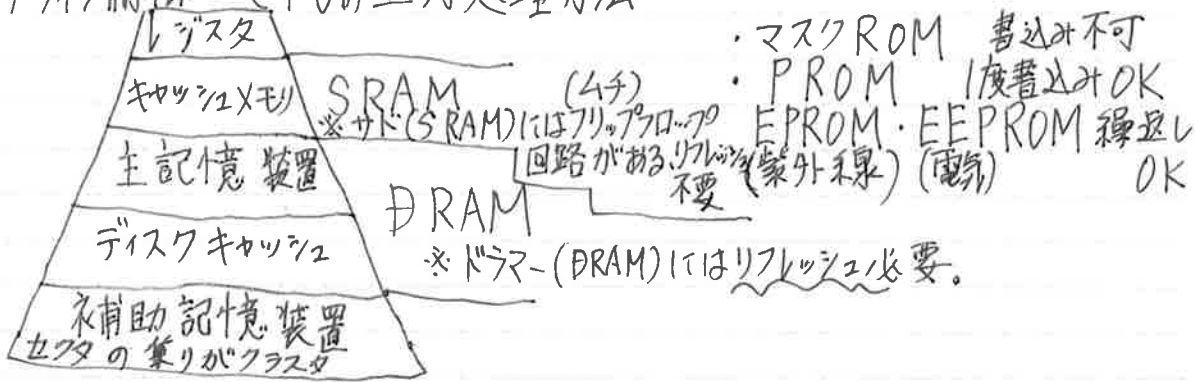 レジスタ
キャッシュメモリ
主記憶装置
ディスクキャッシュ
補助記憶装置
セクタの集りがクラスタ
SRAM (ムチ)
※サド(SRAM)にはフリップフロップ
回路がある。リフレッシュ
不要
DRAM
※ドラマー(DRAM)にはリフレッシュ必要。
・マスクROM 書込み不可
・PROM 1度書込みOK
EPROM・EEPROM 繰返し
(紫外線) (電気) OK